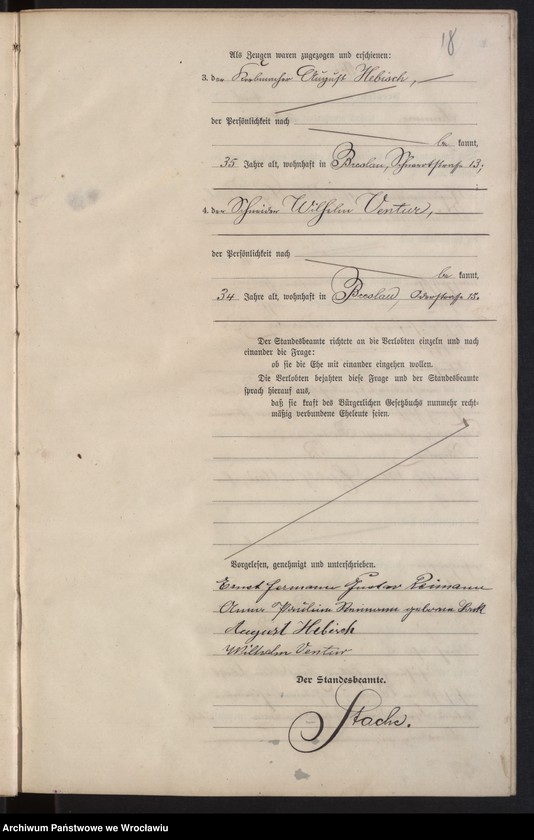 18
Als Zeugen waren zugezogen und erschienen:
3. der Korbmacher August Hebisch,
der Persönlichkeit nach
be kannt,
35 Jahre alt, wohnhaft in Breslau, Schwertstraße 13;
4. der Schneider Wilhelm Ventur,
der Persönlichkeit nach
be kannt,
34 Jahre alt, wohnhaft in Breslau, Oderstraße 15.
Der Standesbeamte richtete an die Verlobten einzeln und nach
einander die Frage:
ob sie die Ehe mit einander eingehen wollen.
Die Verlobten bejahten diese Frage und der Standesbeamte
sprach hierauf aus,
daß sie kraft des Bürgerlichen Gesetzbuchs nunmehr recht-
mäßig verbundene Eheleute seien.
Vorgelesen, genehmigt und unterschrieben.
Ernst Hermann Gustav Reimann
Anna Pauline Reimann geborne
August Hebisch
Wilhelm Ventur
Der Standesbeamte.
Stache.
Archiwum Państwowe we Wrocławiu